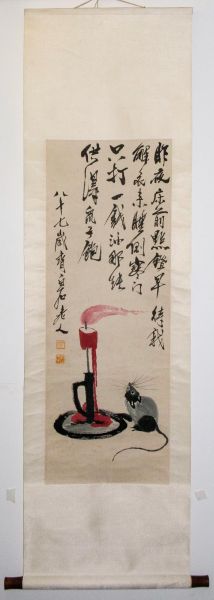 昨夜床前點燈早待我
解衣來睡倒寒門
只打一錢油那能
供得鼠子飽
八十七歲齊白石老人